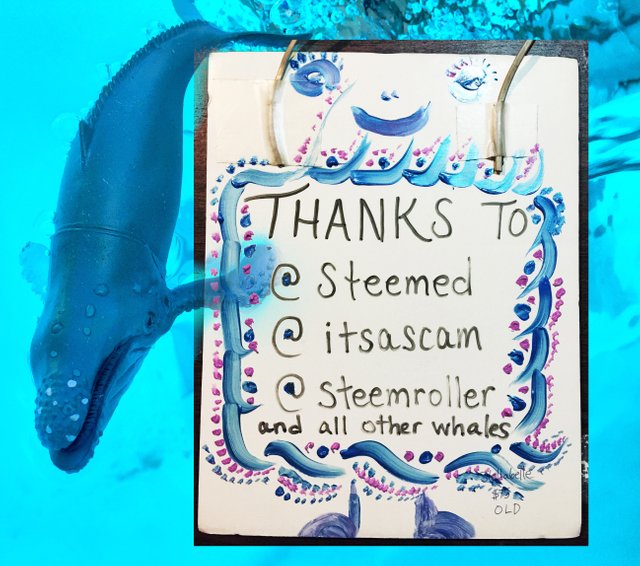 THANKS TO
@ Steemed
@ itsascam
@ steemroller
and all other whales
OLD